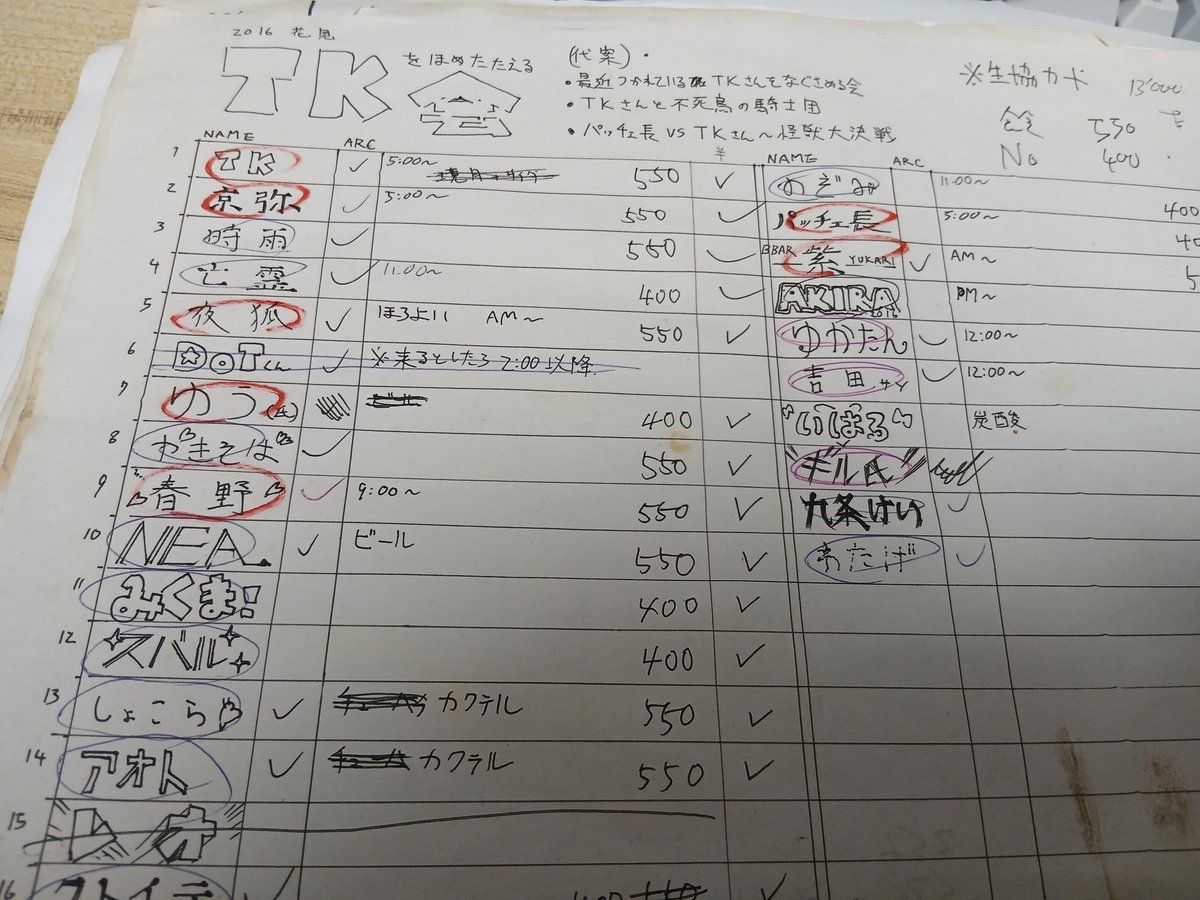 2016 花見
TKをほめたたえる会
(代案)・
・最近つかれているTKさんをなぐさめる会
・TKさんと不死鳥の騎士団
・パッチェ長 VS TKさん〜怪獣大決戦
※生協カード 13'000
550
No 400
NAME ARC ¥
1 TK ✓ 5:00〜 550 ✓
2 京弥 ✓ 5:00〜 550 ✓
3 時雨 ✓ 550 ✓
4 亡霊 ✓ 11:00〜 400 ✓
5 夜狐 ✓ ほろよい AM〜 550 ✓
6 くん ✓ ※来るとしたら2:00以降
7 ゆう ビール 400 ✓
8 やきそば ✓ 550 ✓
9 春野 ✓ 9:00〜 550 ✓
10 NEA. ✓ ビール 550 ✓
11 みくま 400 ✓
12 スバル 400 ✓
13 しょこら ✓ カクテル 550 ✓
14 アオト ✓ カクテル 550 ✓
15 レオ
16 ✓ 400 ✓
NAME ARC
のぞみ 11:00〜 400
パッチェ長 5:00〜
BBAR 紫 YUKARI ✓ AM〜
AKIRA PM〜
ゆかたん ✓ 12:00〜
吉田サン ✓ 12:00〜
いほろ 炭酸
"ギルA"
九条けい ✓
わたげ ✓